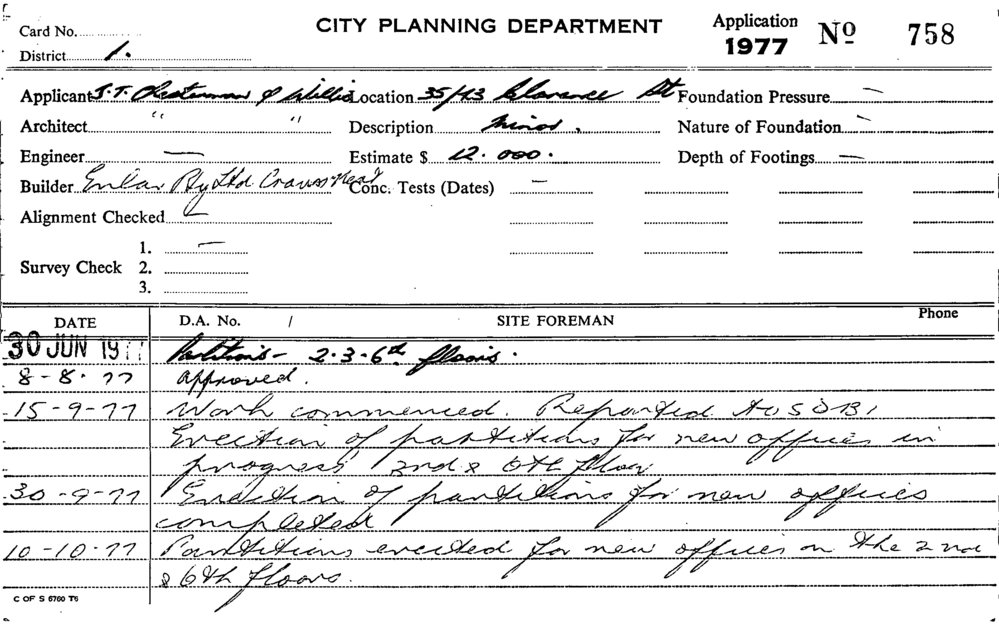 CITY PLANNING DEPARTMENT
Application 1977 Nº 758
Card No.
District 1.
Applicant J.T. Chesterman & Willis Location 35/43 Clarence St Foundation Pressure —
Architect " " Description Minor. Nature of Foundation —
Engineer — Estimate $ 12.000. Depth of Footings —
Builder Enlar Pty Ltd Conc. Tests (Dates) —
Alignment Checked
Survey Check 1. —
2.
3.
DATE D.A. No. / SITE FOREMAN Phone
30 JUN 1977 Partitions - 2.3.6th floors.
8-8-77 Approved.
15-9-77 Work commenced. Reported to SDBI
Erection of partitions for new offices in
progress 2nd & 6th floor
30-9-77 Erection of partitions for new offices
completed
10-10-77 Partitions erected for new offices on the 2nd
& 6th floors.
C OF S 6760 T6